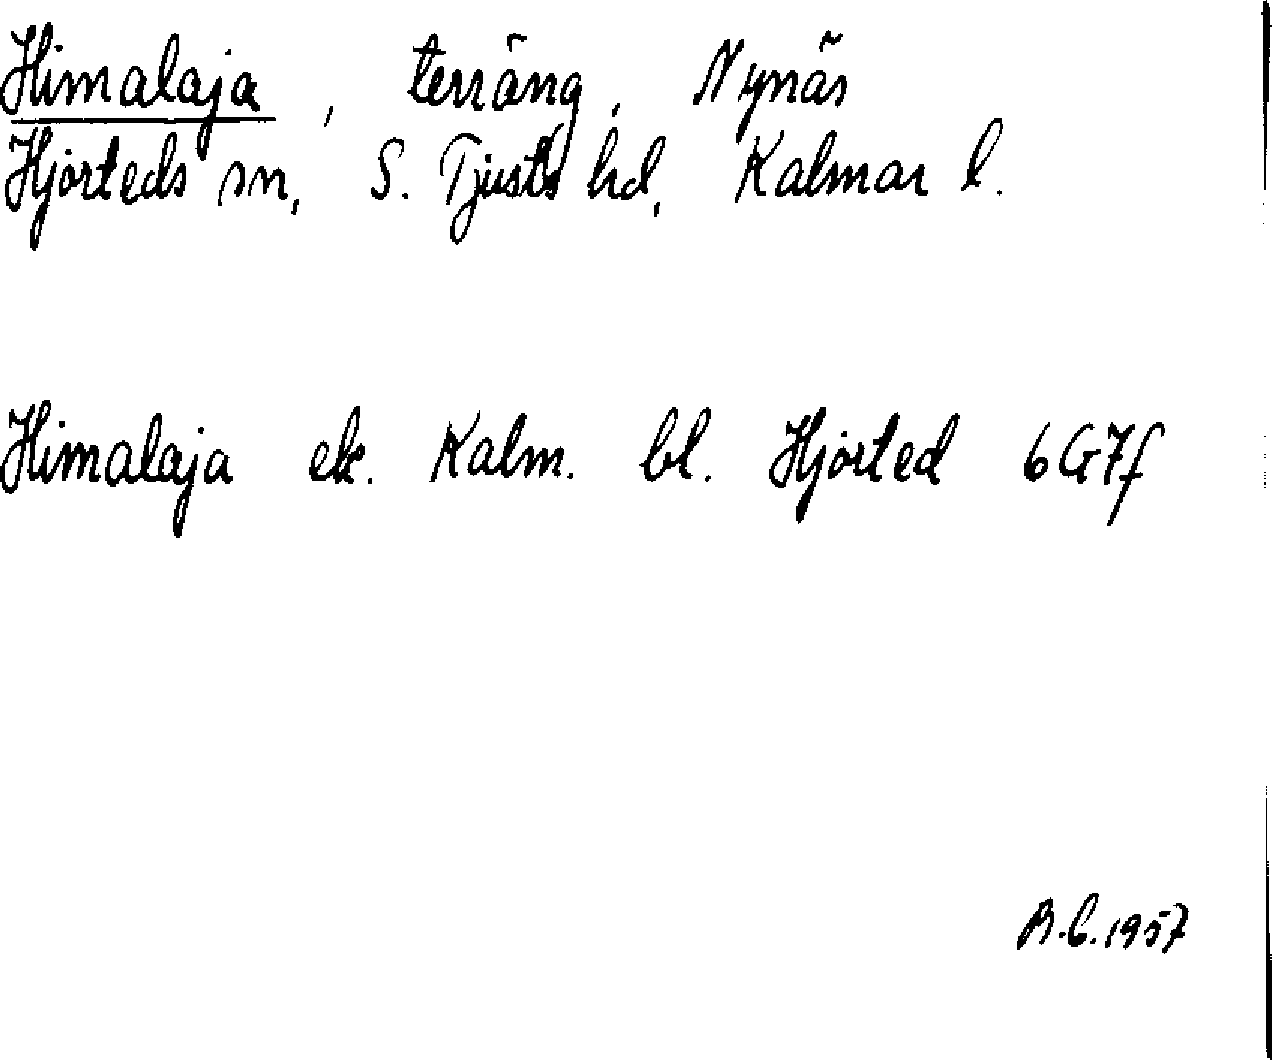 Himalaja, terräng, Nynäs
Hjorteds sn, S. Tjusts hd, Kalmar l.
Himalaja ek. Kalm. bl. Hjorted 6G7f
B.L. 1957